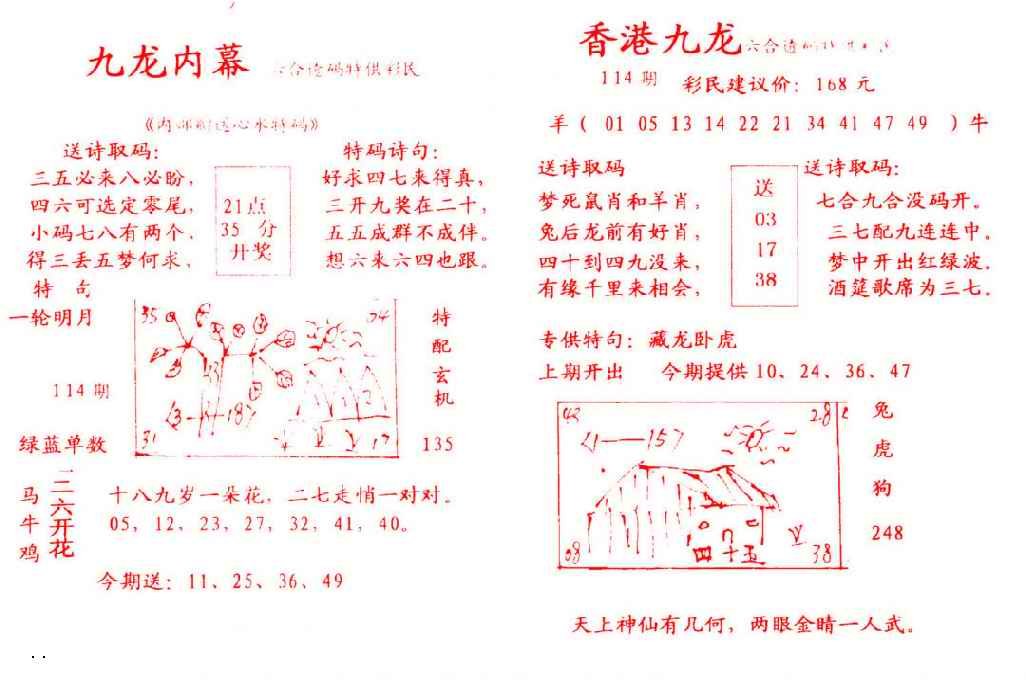 九龙内幕
特供彩民
送诗取码：
三五必来八必盼，
四六可选定零尾，
小码七八有两个，
得三丢五梦何求，
特码诗句：
好求四七来得真，
三开九奖在二十，
五五成群不成伴。
想六来六四也跟。
21点
35 分
开奖
特 句
一轮明月
114期
绿蓝单数
35
31
17
13
187
特
配
玄
机
135
马
牛
鸡
三六开花
十八九岁一朵花，二七走悄一对对。
05，12，23，27，32，41，40。
今期送：11、25、36、49
香港九龙
六合
114期 彩民建议价：168元
羊（ 01 05 13 14 22 21 34 41 47 49 ）牛
送诗取码
梦死鼠肖和羊肖，
兔后龙前有好肖，
四十到四九没来，
有缘千里来相会，
送
03
17
38
送诗取码：
七合九合没码开。
三七配九连连中。
梦中开出红绿波．
酒筵歌席为三七．
专供特句：藏龙卧虎
上期开出 今期提供10、24、36、47
42
28
21——157
08
四十五
38
兔
虎
狗
248
天上神仙有几何，两眼金睛一人武。